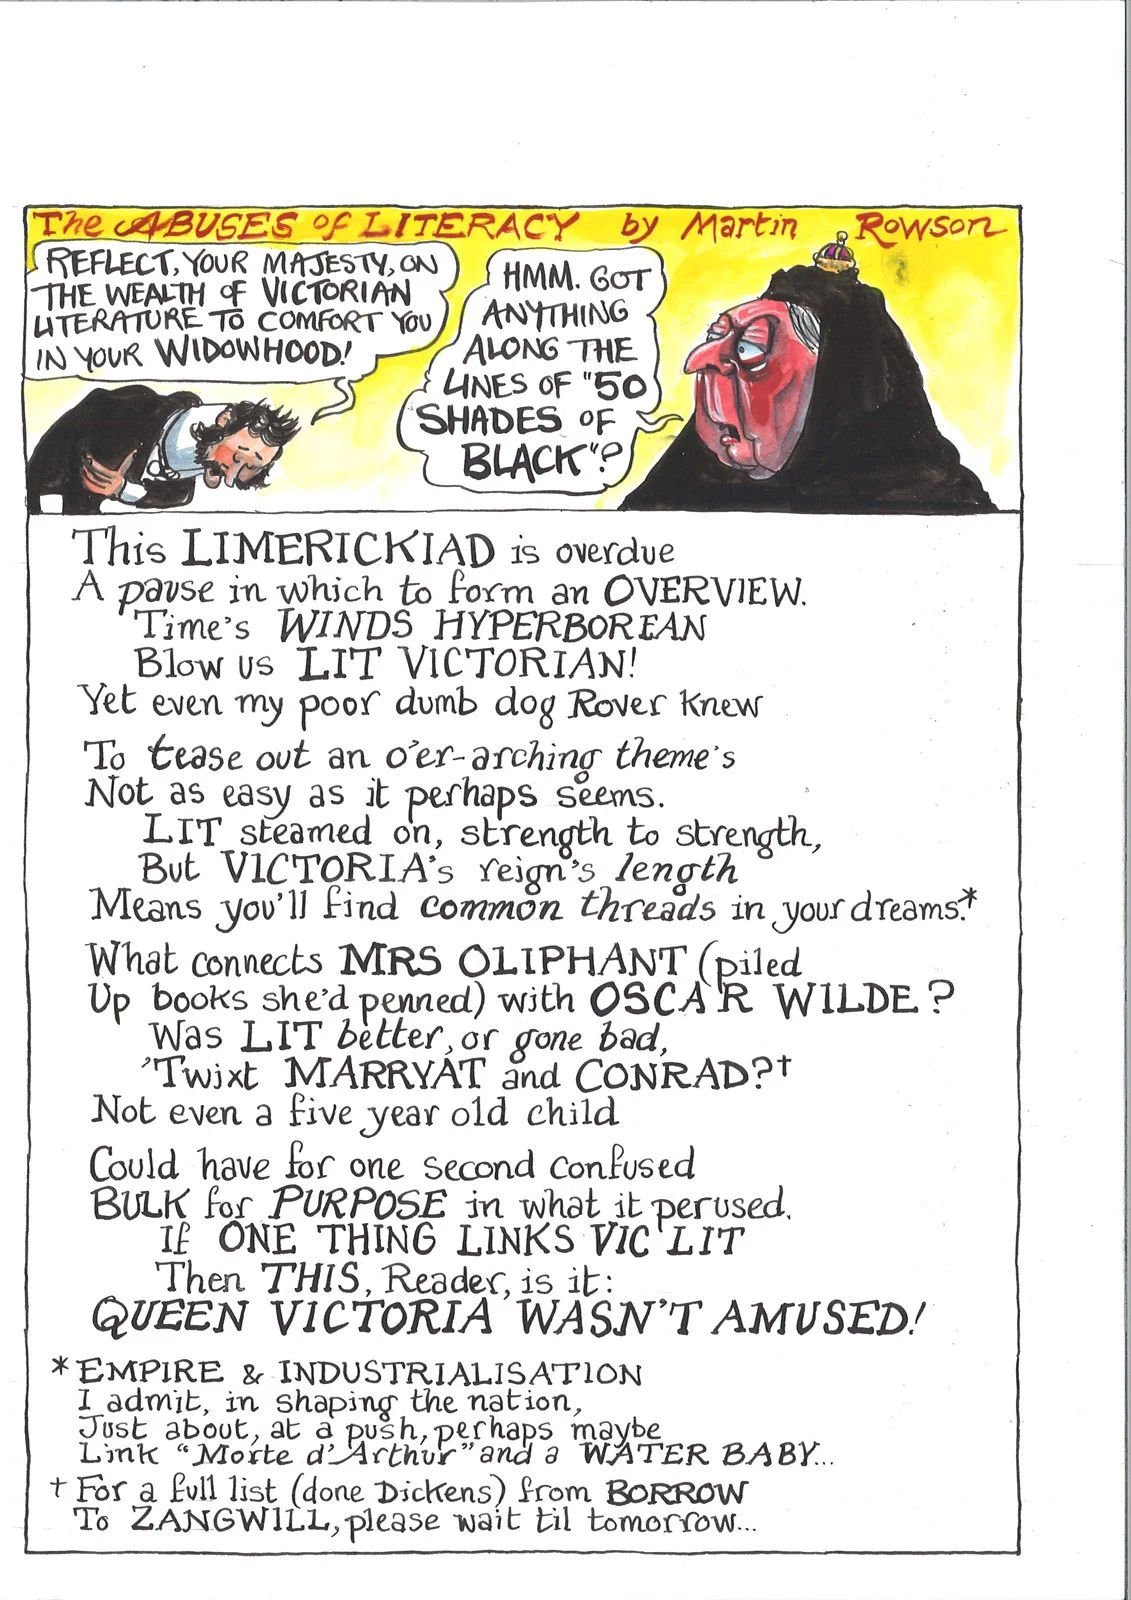 The ABUSES of LITERACY by Martin Rowson
REFLECT, YOUR MAJESTY, ON
THE WEALTH OF VICTORIAN
LITERATURE TO COMFORT YOU
IN YOUR WIDOWHOOD!
HMM. GOT
ANYTHING
ALONG THE
LINES OF "50
SHADES OF
BLACK"?
This LIMERICKIAD is overdue
A pause in which to form an OVERVIEW.
Time's WINDS HYPERBOREAN
Blow us LIT VICTORIAN!
Yet even my poor dumb dog Rover knew
To tease out an o'er-arching theme's
Not as easy as it perhaps seems.
LIT steamed on, strength to strength,
But VICTORIA's reign's length
Means you'll find common threads in your dreams.*
What connects MRS OLIPHANT (piled
Up books she'd penned) with OSCAR WILDE?
Was LIT better, or gone bad,
'Twixt MARRYAT and CONRAD?†
Not even a five year old child
Could have for one second confused
BULK for PURPOSE in what it perused.
If ONE THING LINKS VIC LIT
Then THIS, Reader, is it:
QUEEN VICTORIA WASN'T AMUSED!
* EMPIRE & INDUSTRIALISATION
I admit, in shaping the nation,
Just about, at a push, perhaps maybe
Link "Morte d'Arthur" and a WATER BABY...
† For a full list (done Dickens) from BORROW
To ZANGWILL, please wait til tomorrow...